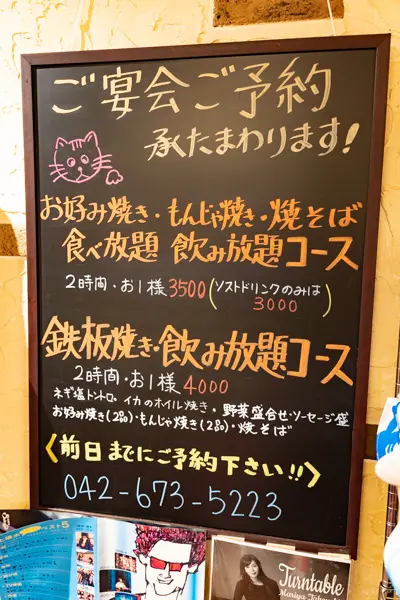 ご宴会ご予約
承たまわります!
お好み焼き・もんじゃ焼き・焼そば
食べ放題 飲み放題コース
2時間・お1様3500(ソストドリンクのみは
3000)
鉄板焼き・飲み放題コース
2時間・お1様4000
ネギ塩トントロ・イカのホイル焼き・野菜盛合せ・ソーセージ盛
お好み焼き(2品)・もんじゃ焼き(2品)・焼そば
〈前日までにご予約下さい!!〉
042-673-5223
ベスト5
Turntable
Mariya Takeuchi